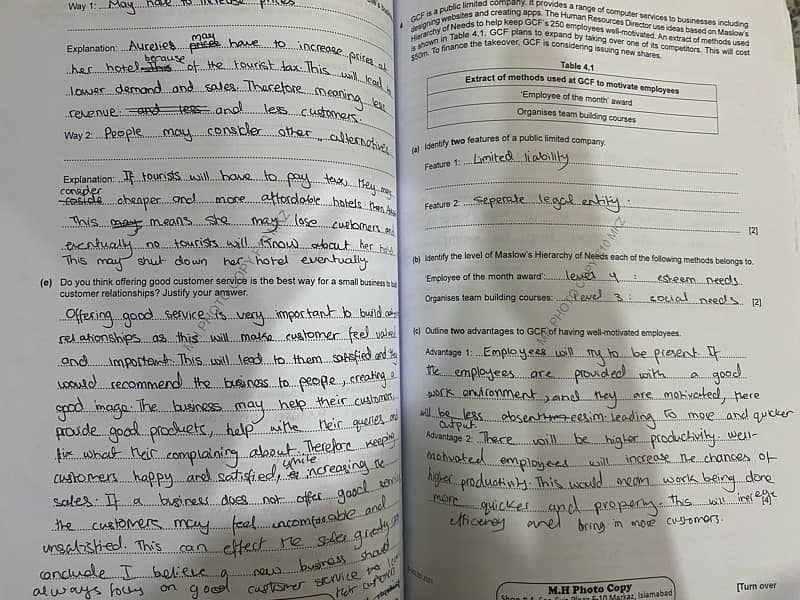 Way 1: May have to increase prices
Explanation: Aurelie's may have to increase prices at
her hotel because of the tourist tax. This will lead
lower demand and sales. Therefore meaning less
revenue. and less and less customers.
Way 2: People may consider other alternatives
Explanation: If tourists will have to pay tax, they may
consider cheaper and more affordable hotels than
This may means she may lose customers and
eventually no tourists will know about her hotel
This may shut down her hotel eventually
(e) Do you think offering good customer service is the best way for a small business to build
customer relationships? Justify your answer.
Offering good service is very important to build
relationships as this will make customer feel valued
and important. This will lead to them satisfied and they
would recommend the business to people, creating a
good image. The business may help their customers,
provide good products, help with their queries and
fix what their complaining about. Therefore keeping
customers happy and satisfied, while increasing re
sales. If a business does not offer good service
the customers may feel uncomfortable and
unsatisfied. This can effect the sales greatly.
conclude I believe a new business should
always focus on good customer service
4 GCF is a public limited company. It provides a range of computer services to businesses including
designing websites and creating apps. The Human Resources Director use ideas based on Maslow's
Hierarchy of Needs to help keep GCF's 250 employees well-motivated. An extract of methods used
is shown in Table 4.1. GCF plans to expand by taking over one of its competitors. This will cost
$50m. To finance the takeover, GCF is considering issuing new shares.
Table 4.1
Extract of methods used at GCF to motivate employees
'Employee of the month' award
Organises team building courses
(a) Identify two features of a public limited company.
Feature 1: Limited liability
Feature 2: Seperate legal entity.
[2]
(b) Identify the level of Maslow's Hierarchy of Needs each of the following methods belongs to.
'Employee of the month award': level 4 : esteem needs
Organises team building courses: level 3 : social needs [2]
(c) Outline two advantages to GCF of having well-motivated employees.
Advantage 1: Employees will try to be present If
the employees are provided with a good
work environment, and they are motivated, there
will be less absenteesim leading to more and quicker
output.
Advantage 2: There will be higher productivity. Well-
motivated employees will increase the chances of
higher productivity. This would mean work being done
more quicker and properly. This will increase
[4]
efficency and bring in more customers.
M.H Photo Copy
[Turn over